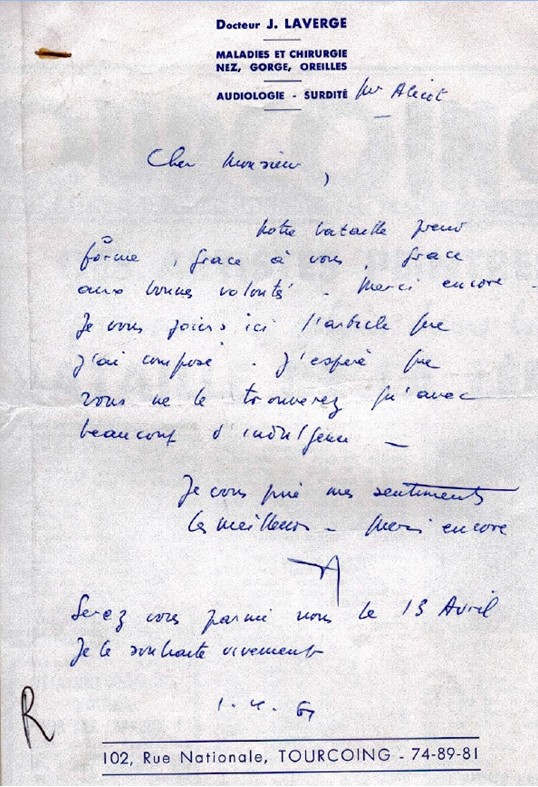 Docteur J. LAVERGE
MALADIES ET CHIRURGIE
NEZ, GORGE, OREILLES
AUDIOLOGIE - SURDITÉ
Mr Alicot
Cher Monsieur,
Notre bataille prend
forme, grace à vous, grace
aux bonnes volontés. Merci encore.
Je vous joins ici l'article que
j'ai composé. J'espère que
vous ne le trouverez qu'avec
beaucoup d'indulgence _
Je vous prie mes sentiments
les meilleurs - Merci encore
Serez vous parmi nous le 13 Avril
Je le souhaite vivement
1. 4. 67
R
102, Rue Nationale, TOURCOING - 74-89-81